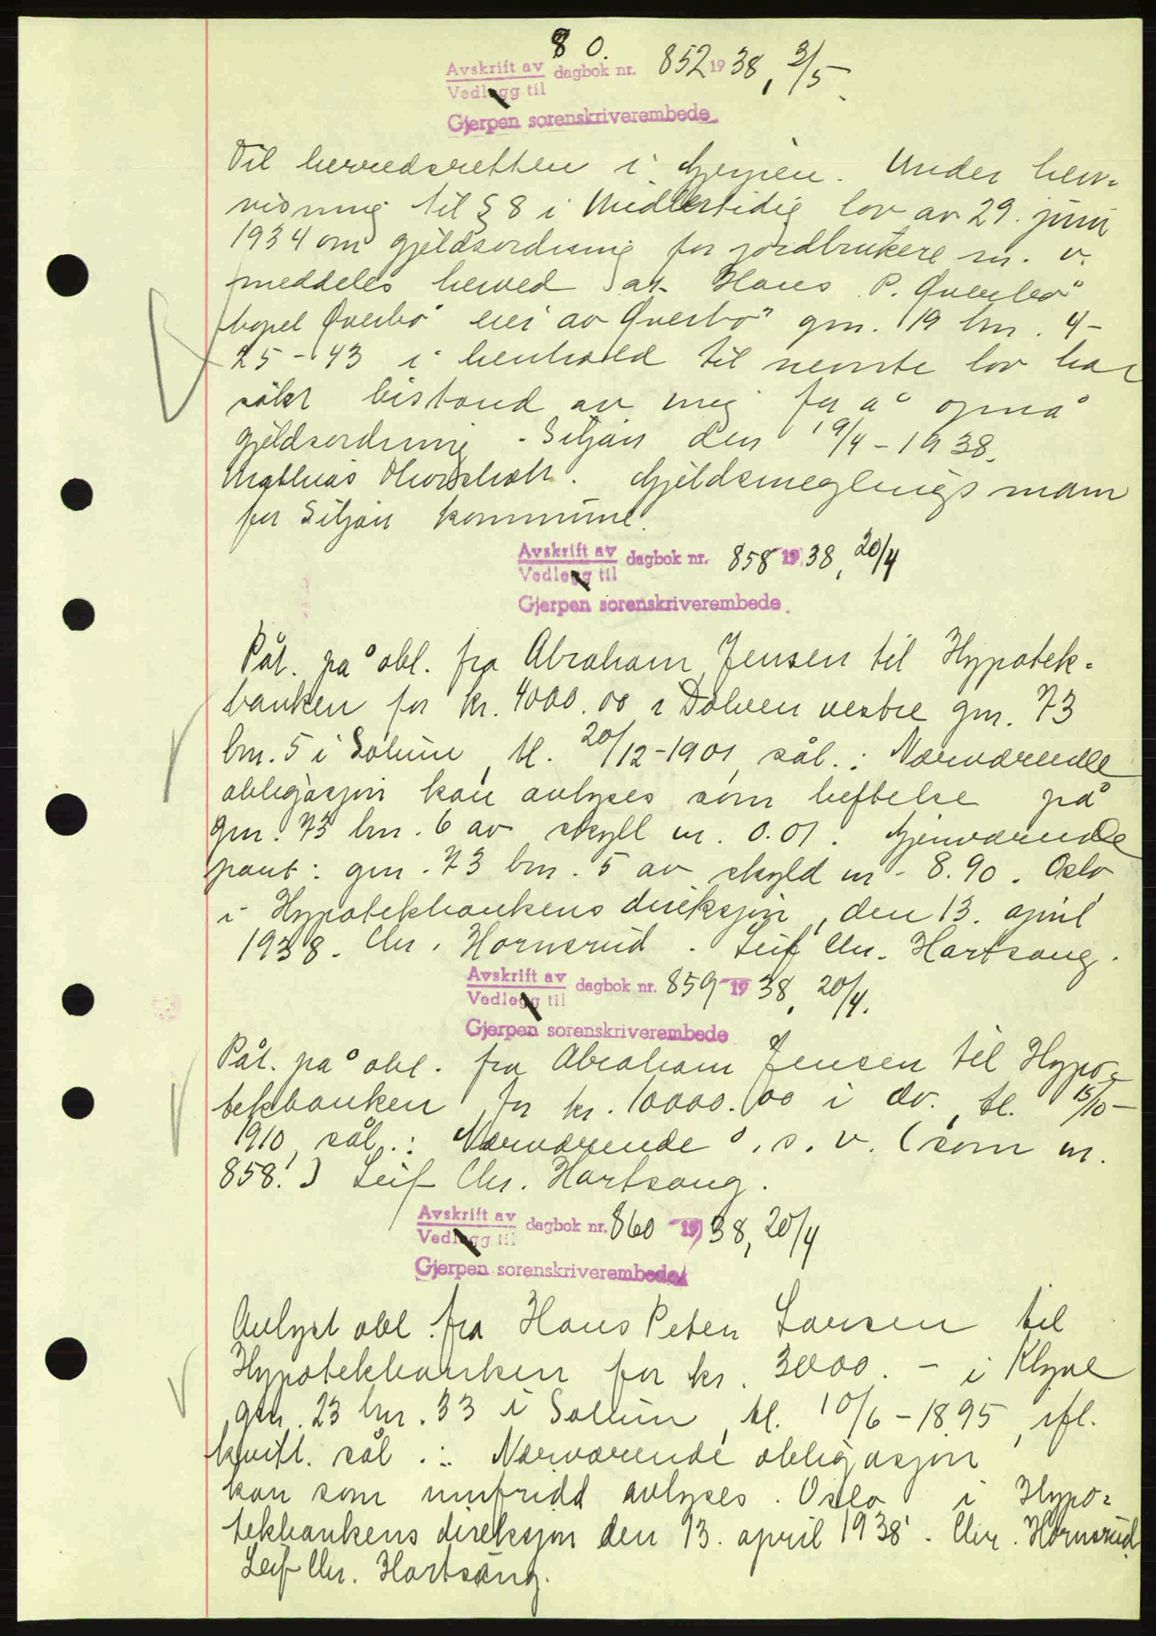 80.
Avskrift av dagbok nr. 852 1938, 3/5
Vedlegg til
Gjerpen sorenskriverembede
Til herredsretten i Gjerpen. Under hen-
visning til § 8 i Midlertidig lov av 29. juni
1934 om gjeldsordning for jordbrukere m. v.
meddeles herved at Hans P. Qverbø
bopel Qverbø eier av Qverbø gnr. 19 bnr. 4-
25-43 i henhold til nevnte lov har
søkt bistand av mig for å opnå
gjeldsordning. Siljan den 19/4-1938.
Mathias . Gjeldsmeglingsmann
for Siljan kommune.
Avskrift av dagbok nr. 858 1938, 20/4
Vedlegg til
Gjerpen sorenskriverembede.
Påt. på obl. fra Abraham Jensen til Hypotek-
banken for kr. 4000.00 i Dolven vestre gnr. 73
bnr. 5 i Solum, tl. 20/12-1901, sål.: Nærværende
obligasjon kan avlyses som heftelse på
gnr. 73 bnr. 6 av skyll m. 0.01. Gjenværende
pant: gnr. 73 bnr. 5 av skyld m. 8.90. Oslo,
i Hypotekbankens direksjon, den 13. april
1938. Chr. Hornsrud. Leif Chr. Hartsang.
Avskrift av dagbok nr. 859 1938, 20/4.
Vedlegg til
Gjerpen sorenskriverembede
Påt. på obl. fra Abraham Jensen til Hypo-
tekbanken for kr. 10000.00 i do. tl. 15/10-
1910, sål.: Nærværende o. s. v. (som nr.
858.) Leif Chr. Hartsang.
Avskrift av dagbok nr. 860 1938, 20/4
Vedlegg til
Gjerpen sorenskriverembede
Avlyst obl. fra Hans Peter Larsen til
Hypotekbanken for kr. 3000.- i Klyve
gnr. 23 bnr. 33 i Solum, tl. 10/6-1895, ifl.
kvitt. sål.: Nærværende obligasjon
kan som innfridd avlyses. Oslo i Hypo-
tekbankens direksjon den 13. april 1938. Chr. Hornsrud
Leif Chr. Hartsang.